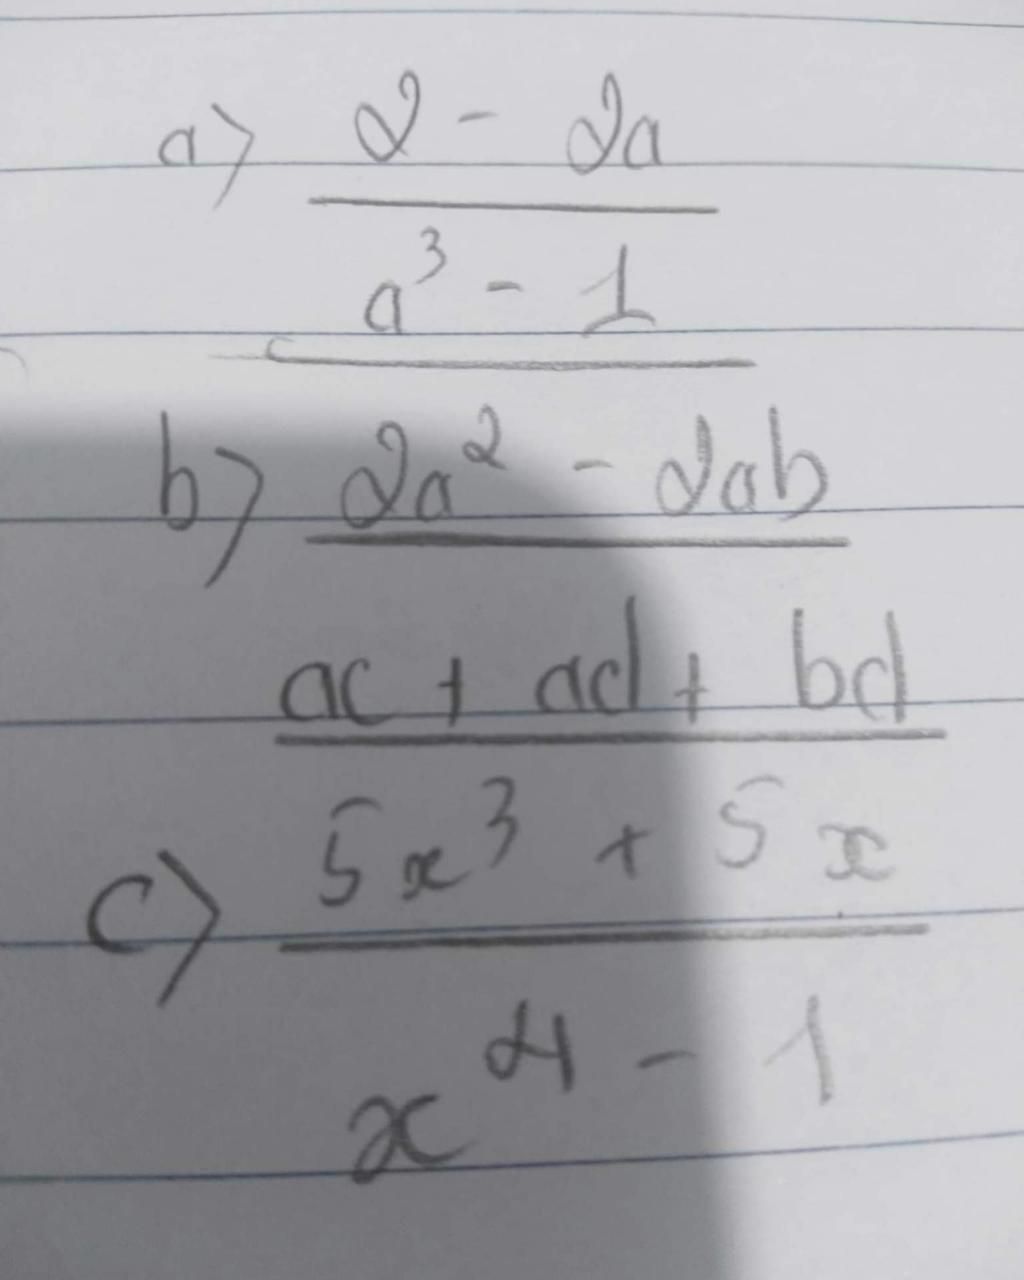 a) 2 - 2a
a³ - 1
b) 2a² - 2ab
ac + ad + bd
c) 5x³ + 5x
x⁴ - 1